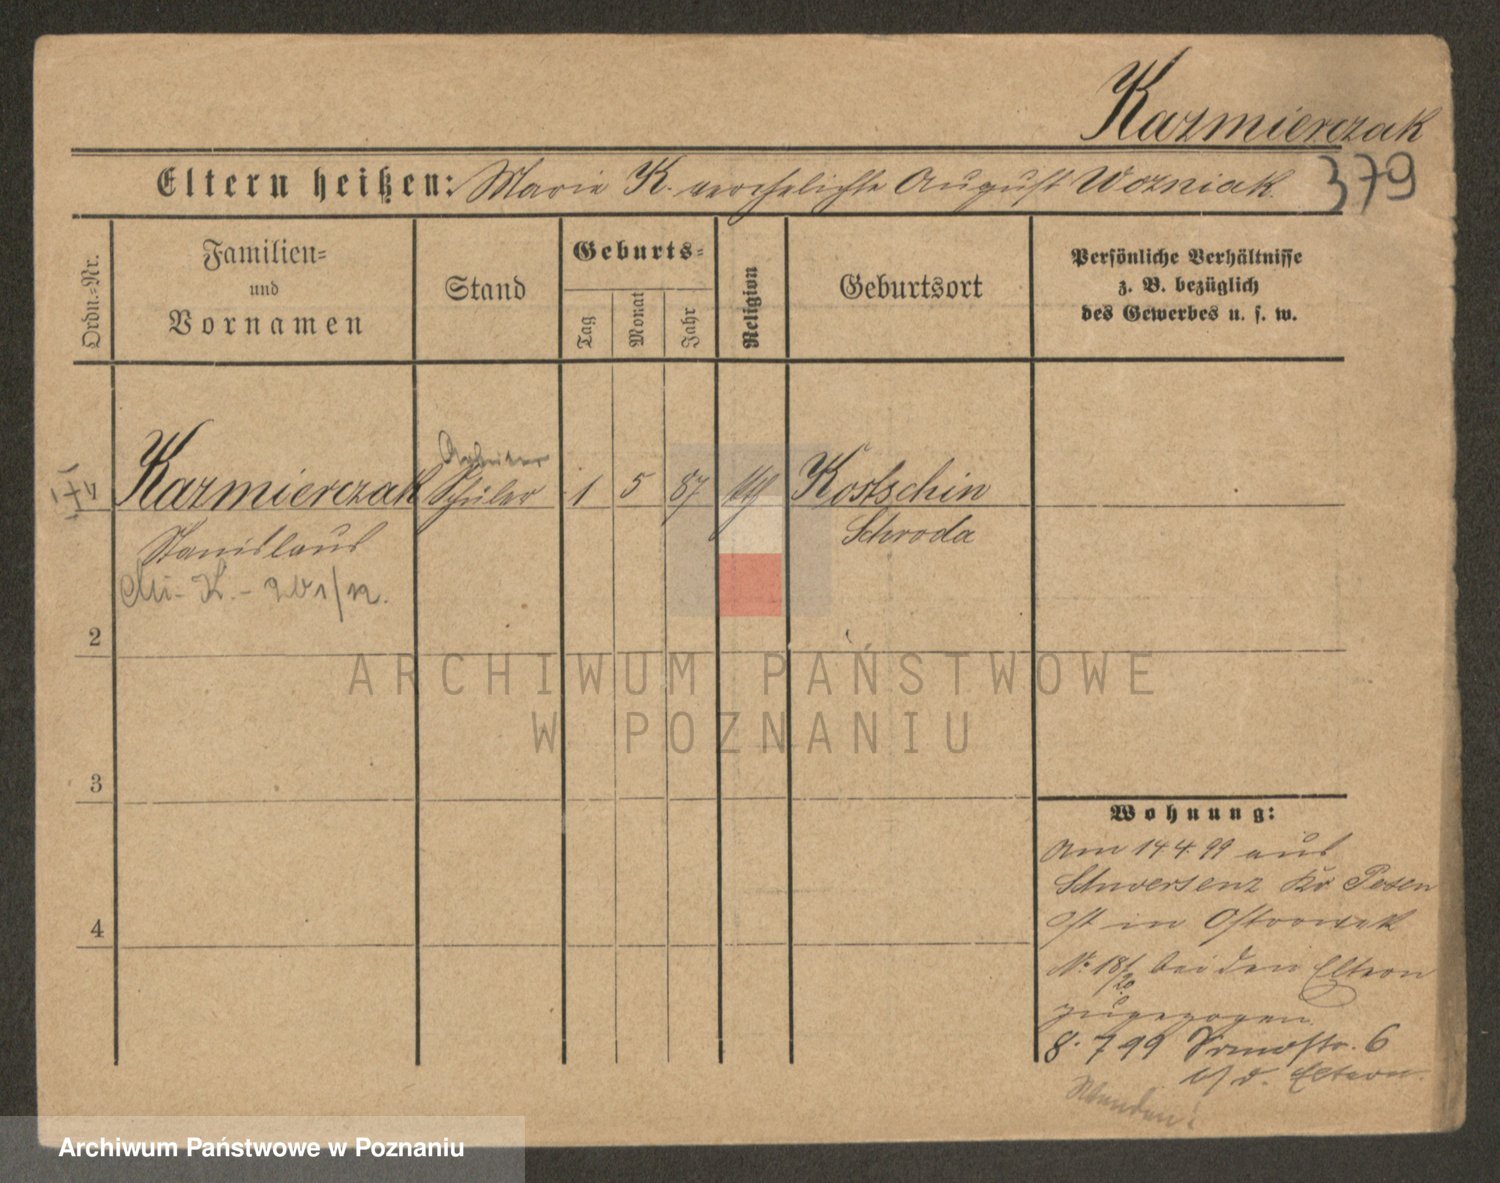 Kazmierczak
379
Eltern heißen: Marie K. verehelichte August Wozniak.
Ordn.=Nr.
Familien= und Vornamen
Stand
Geburts=
Tag
Monat
Jahr
Religion
Geburtsort
Persönliche Verhältnisse
z. B. bezüglich
des Gewerbes u. s. w.
Arbeiter
Kazmierczak Schüler 1 5 87 Kostschin
Stanislaus Schroda
2
3
4
Wohnung:
Am 14 4. 99 aus
Schwersenz Kr. Posen
Ost in Ostrowek
No. 18/20 bei den Eltern
zugezogen.
8. 7 99 6
b/d. Eltern.
ARCHIWUM PAŃSTWOWE
W POZNANIU
Archiwum Państwowe w Poznaniu